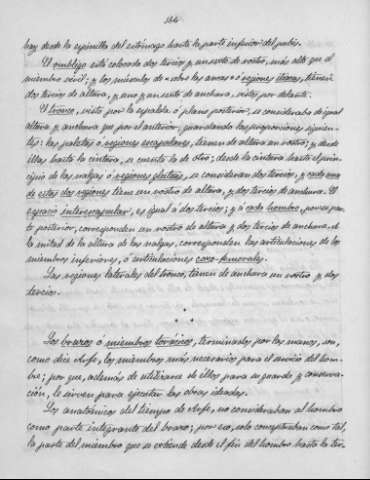 144
hay desde la espinilla del estómago hasta la parte inferior del pubis.
El ombligo está colocado dos tercios y un sexto de rostro, más alto que el
miembro viril; y los músculos de sobre las ancas ó regiones ilíacas, tienen
dos tercios de altura, y uno y un sexto de anchura, vistos por delante.
El tronco, visto por la espalda ó plano posterior, se consideraba de igual
altura y anchura que por el anterior, guardando las proporciones siguien-
tes: las paletas ó regiones escapulares, tienen de altura un rostro; y desde
ellas hasta la cintura, se cuenta la de otro; desde la cintura hasta el prin-
cipio de las nalgas ó regiones glúteas, se consideran dos tercios, y cada una
de estas dos regiones tiene un rostro de altura, y dos tercios de anchura. El
espacio interescapular, es igual á dos tercios; y á cada hombro, por su par-
te posterior, corresponden un rostro de altura y dos tercios de anchura. A
la mitad de la altura de las nalgas, corresponden las articulaciones de los
miembros inferiores, ó articulaciones coxo-femorales.
Las regiones laterales del tronco, tienen de anchura un rostro y dos
tercios.
Los brazos ó miembros torácicos, terminados por las manos, son,
como dice Arfe, los miembros más necesarios para el servicio del hom-
bre; por que, además de utilizarse de ellos para su guarda y conserva-
ción, le sirven para ejecutar las obras ideadas.
Los anatómicos del tiempo de Arfe, no consideraban al hombro
como parte integrante del brazo; por eso, solo conceptuaban como tal,
la parte del miembro que se extiende desde el fin del hombro hasta la ter-